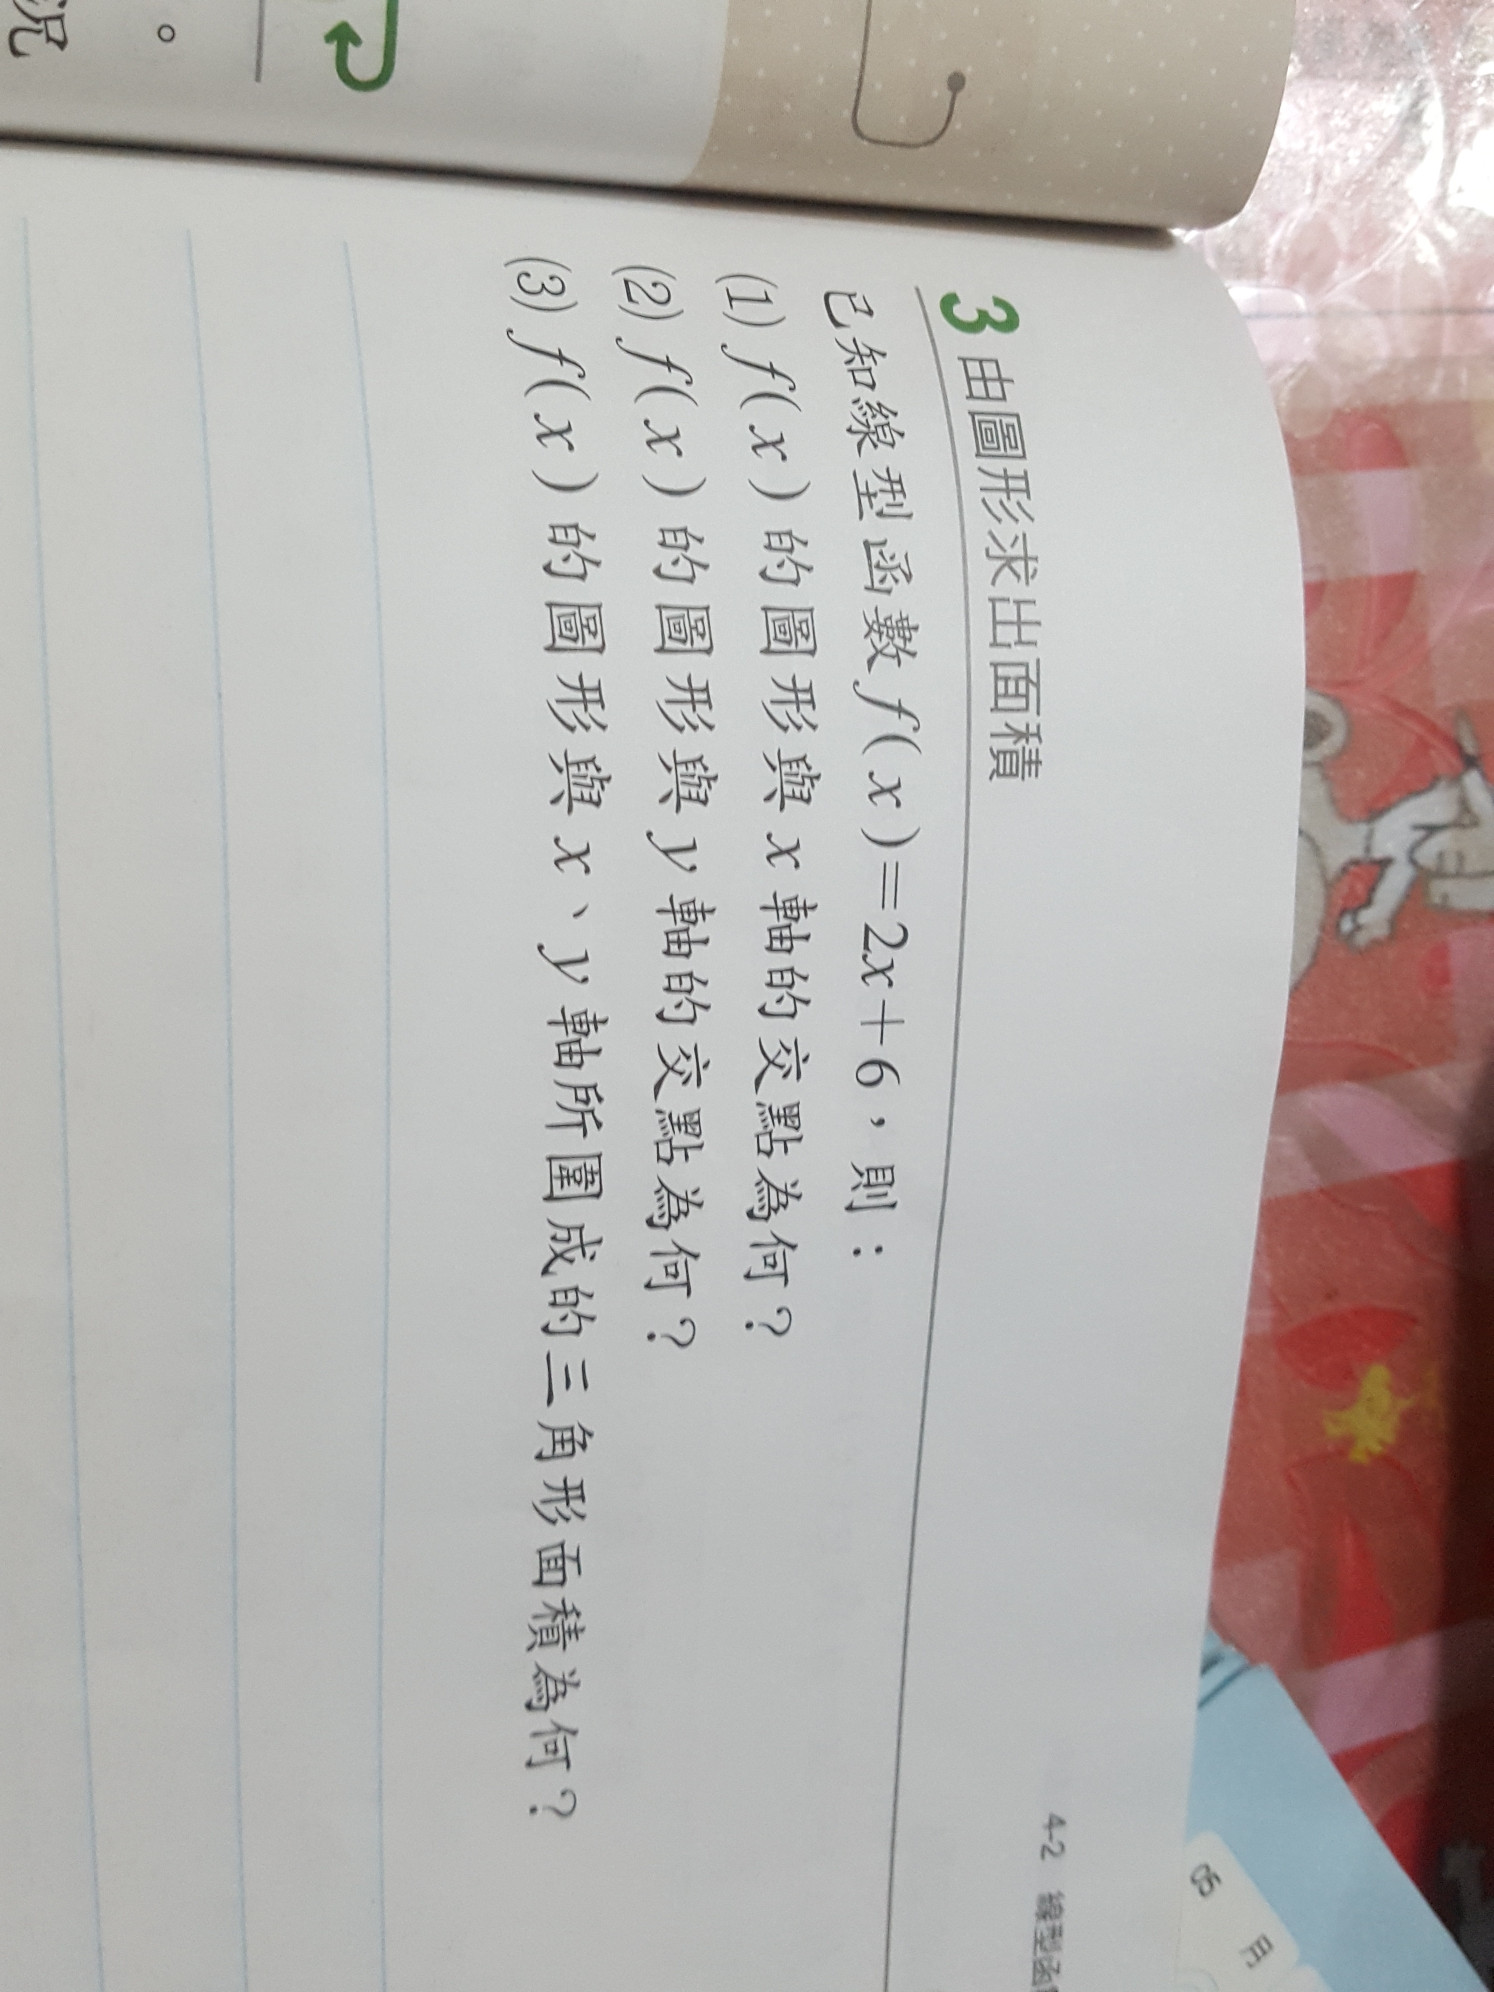 況
。
4-2 線型函
3 由圖形求出面積
已知線型函數 f(x)=2x+6，則：
(1) f(x)的圖形與 x 軸的交點為何？
(2) f(x)的圖形與 y 軸的交點為何？
(3) f(x)的圖形與 x、y 軸所圍成的三角形面積為何？
05 月